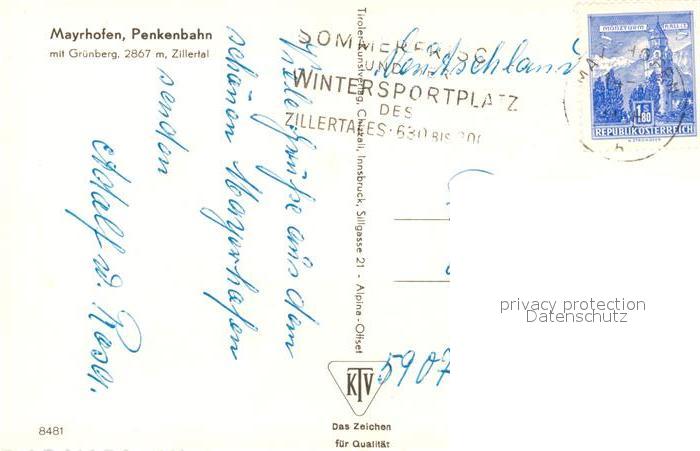 Mayrhofen, Penkenbahn
mit Grünberg, 2867 m, Zillertal
Viele Grüße aus dem
schönen Mayerhofen
senden
Adolf u. Rosa.
8481
Tiroler Kunstverlag, Chizzali, Innsbruck, Sillgasse 21 - Alpina-Offset
SOMMERFRISCHE
UND
WINTERSPORTPLATZ
DES
ZILLERTALES · 630 BIS
Deutschland
MÜNZTURM HALL i. T.
1.80
REPUBLIK ÖSTERREICH
privacy protection
Datenschutz
5907
KTV
Das Zeichen
für Qualität